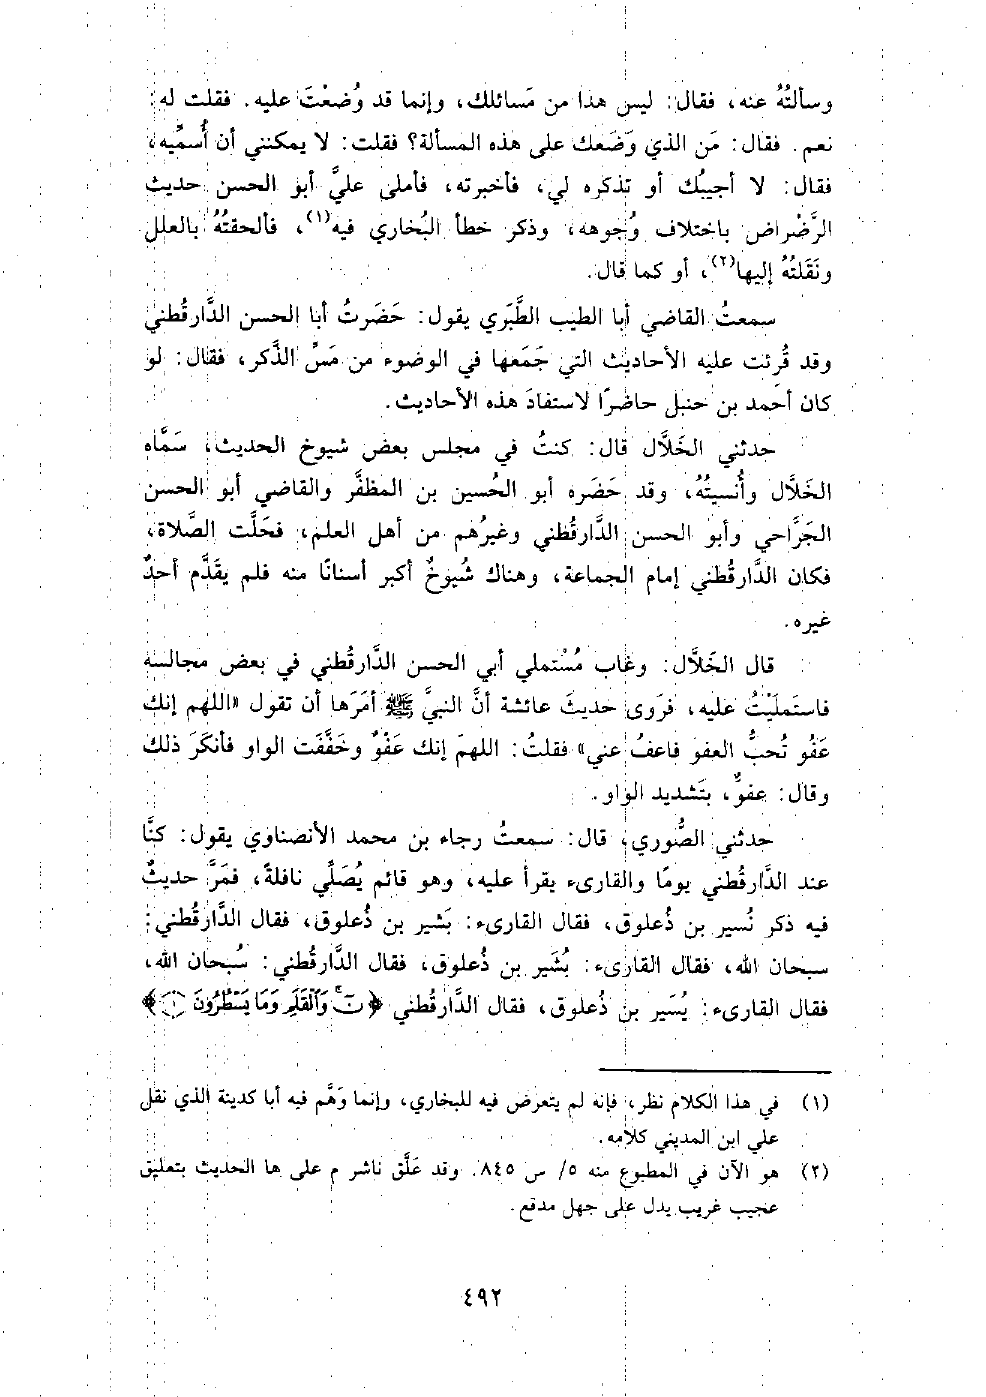 وسألتُهُ عنه، فقال: ليس هذا من مَسائلك، وإنما قد وُضعْتَ عليه. فقلت له:
نعم. فقال: مَن الذي وَضَعك على هذه المسألة؟ فقلت: لا يمكنني أن أُسمِّيه،
فقال: لا أجيبُك أو تذكره لي، فأخبرته، فأملى عليَّ أبو الحسن حديث
الرَّضْراض باختلاف وُجوهه، وذكر خطأ البُخاري فيه(١)، فألحقتُهُ بالعلل
ونَقَلتُهُ إليها(٢)، أو كما قال.
سمعتُ القاضي أبا الطيب الطَّبَري يقول: حَضَرتُ أبا الحسن الدَّارقُطني
وقد قُرئت عليه الأحاديث التي جَمَعها في الوضوء من مَسِّ الذَّكر، فقال: لو
كان أحمد بن حنبل حاضرًا لاستفادَ هذه الأحاديث.
حدثني الخَلاَّل قال: كنتُ في مجلس بعض شيوخ الحديث، سَمَّاه
الخَلَّال وأُنسيتُهُ، وقد حَضَره أبو الحُسين بن المظفَّر والقاضي أبو الحسن
الجَرَّاحي وأبو الحسن الدَّارقُطني وغيرُهم من أهل العلم، فحَلَّت الصَّلاة،
فكان الدَّارقُطني إمام الجماعة، وهناك شُيوخٌ أكبر أسنانًا منه فلم يقَدَّم أحدٌ
غيره.
قال الخَلاَّل: وغاب مُسْتملي أبي الحسن الدَّارقُطني في بعض مجالسه
فاستَملَيْتُ عليه، فرَوى حديثَ عائشة أنَّ النبيَّ ﷺ أمَرَها أن تقول «اللهم إنك
عَفُو تُحبُّ العفو فاعفُ عني» فقلتُ: اللهمَ إنك عَفْوٌ وخَفَّفَت الواو فأنكَرَ ذلك
وقال: عفوٌّ، بتَشديد الواو.
حدثني الصُّوري، قال: سمعتُ رجاء بن محمد الأنصناوي يقول: كنَّا
عند الدَّارقُطني يومًا والقارىء يقرأ عليه، وهو قائم يُصَلِّي نافلةً، فمَرَّ حديثٌ
فيه ذكر نُسير بن ذُعلوق، فقال القارىء: بَشير بن ذُعلوق، فقال الدَّارقُطني:
سبحان الله، فقال القارىء: بُشَير بن ذُعلوق، فقال الدَّارقُطني: سُبحان الله،
فقال القارىء: يُسَير بن ذُعلوق، فقال الدَّارقُطني ﴿نٓ وَٱلْقَلَمِ وَمَا يَسْطُرُونَ ١﴾
(١) في هذا الكلام نظر، فإنه لم يتعرض فيه للبخاري، وإنما وَهَّم فيه أبا كدينة الذي نقل
علي ابن المديني كلامه.
(٢) هو الآن في المطبوع منه ٥/ س ٨٤٥. وقد عَلَّق ناشر م على ها الحديث بتعليق
عجيب غريب يدل على جهل مدقع.
٤٩٢